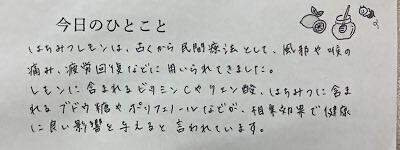 今日のひとこと
はちみつレモンは、古くから民間療法として、風邪や喉の
痛み、疲労回復などに用いられてきました。
レモンに含まれるビタミンCやクエン酸、はちみつに含ま
れるブドウ糖やポリフェノールなどが、相乗効果で健康
に良い影響を与えると言われています。